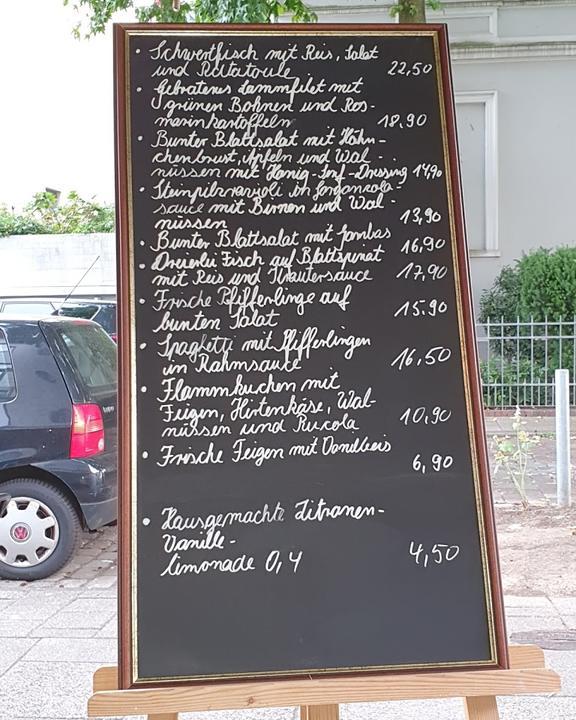 • Schwertfisch mit Reis, Salat
und Ratatoule 22,50
• Gebratenes Lammfilet mit
grünen Bohnen und Ros-
marinkartoffeln 18.90
• Bunter Blattsalat mit Hähn-
chenbrust, Äpfeln und Wal-
nüssen mit Honig-Senf-Dressing 14,90
• Steinpilzravioli in Gorgonzola-
sauce mit Birnen und Wal-
nüssen 13,90
• Bunter Blattsalat mit Gambas 16,90
• Dreierlei Fisch auf Blattspinat
mit Reis und Kräutersauce 17,90
• Frische Pfifferlinge auf
bunten Salat 15.90
• Spaghetti mit Pfifferlingen
in Rahmsauce 16,50
• Flammkuchen mit
Feigen, Hirtenkäse, Wal-
nüssen und Rucola 10,90
• Frische Feigen mit Vanilleeis
6,90
• Hausgemachte Zitronen-
Vanille-
limonade 0,4 4,50